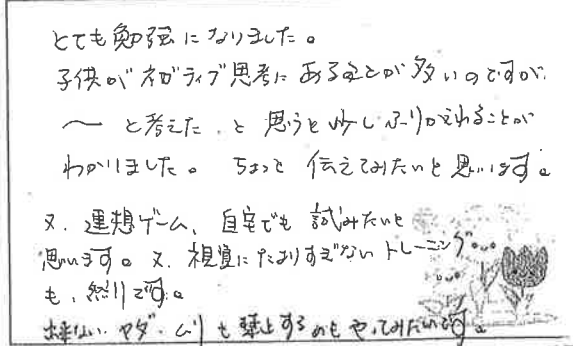 とても勉強になりました。
子供がネガティブ思考にあることが多いのですが、
〜と考えた、と思うと少しふりかえれることが
わかりました。ちょっと伝えてみたいと思います。
又、連想ゲーム、自宅でも試みたいと
思います。又、視覚にたよりすぎないトレーニング
も、然りです。
出来ない、ヤダ、ムリも禁止するのもやってみたいです。